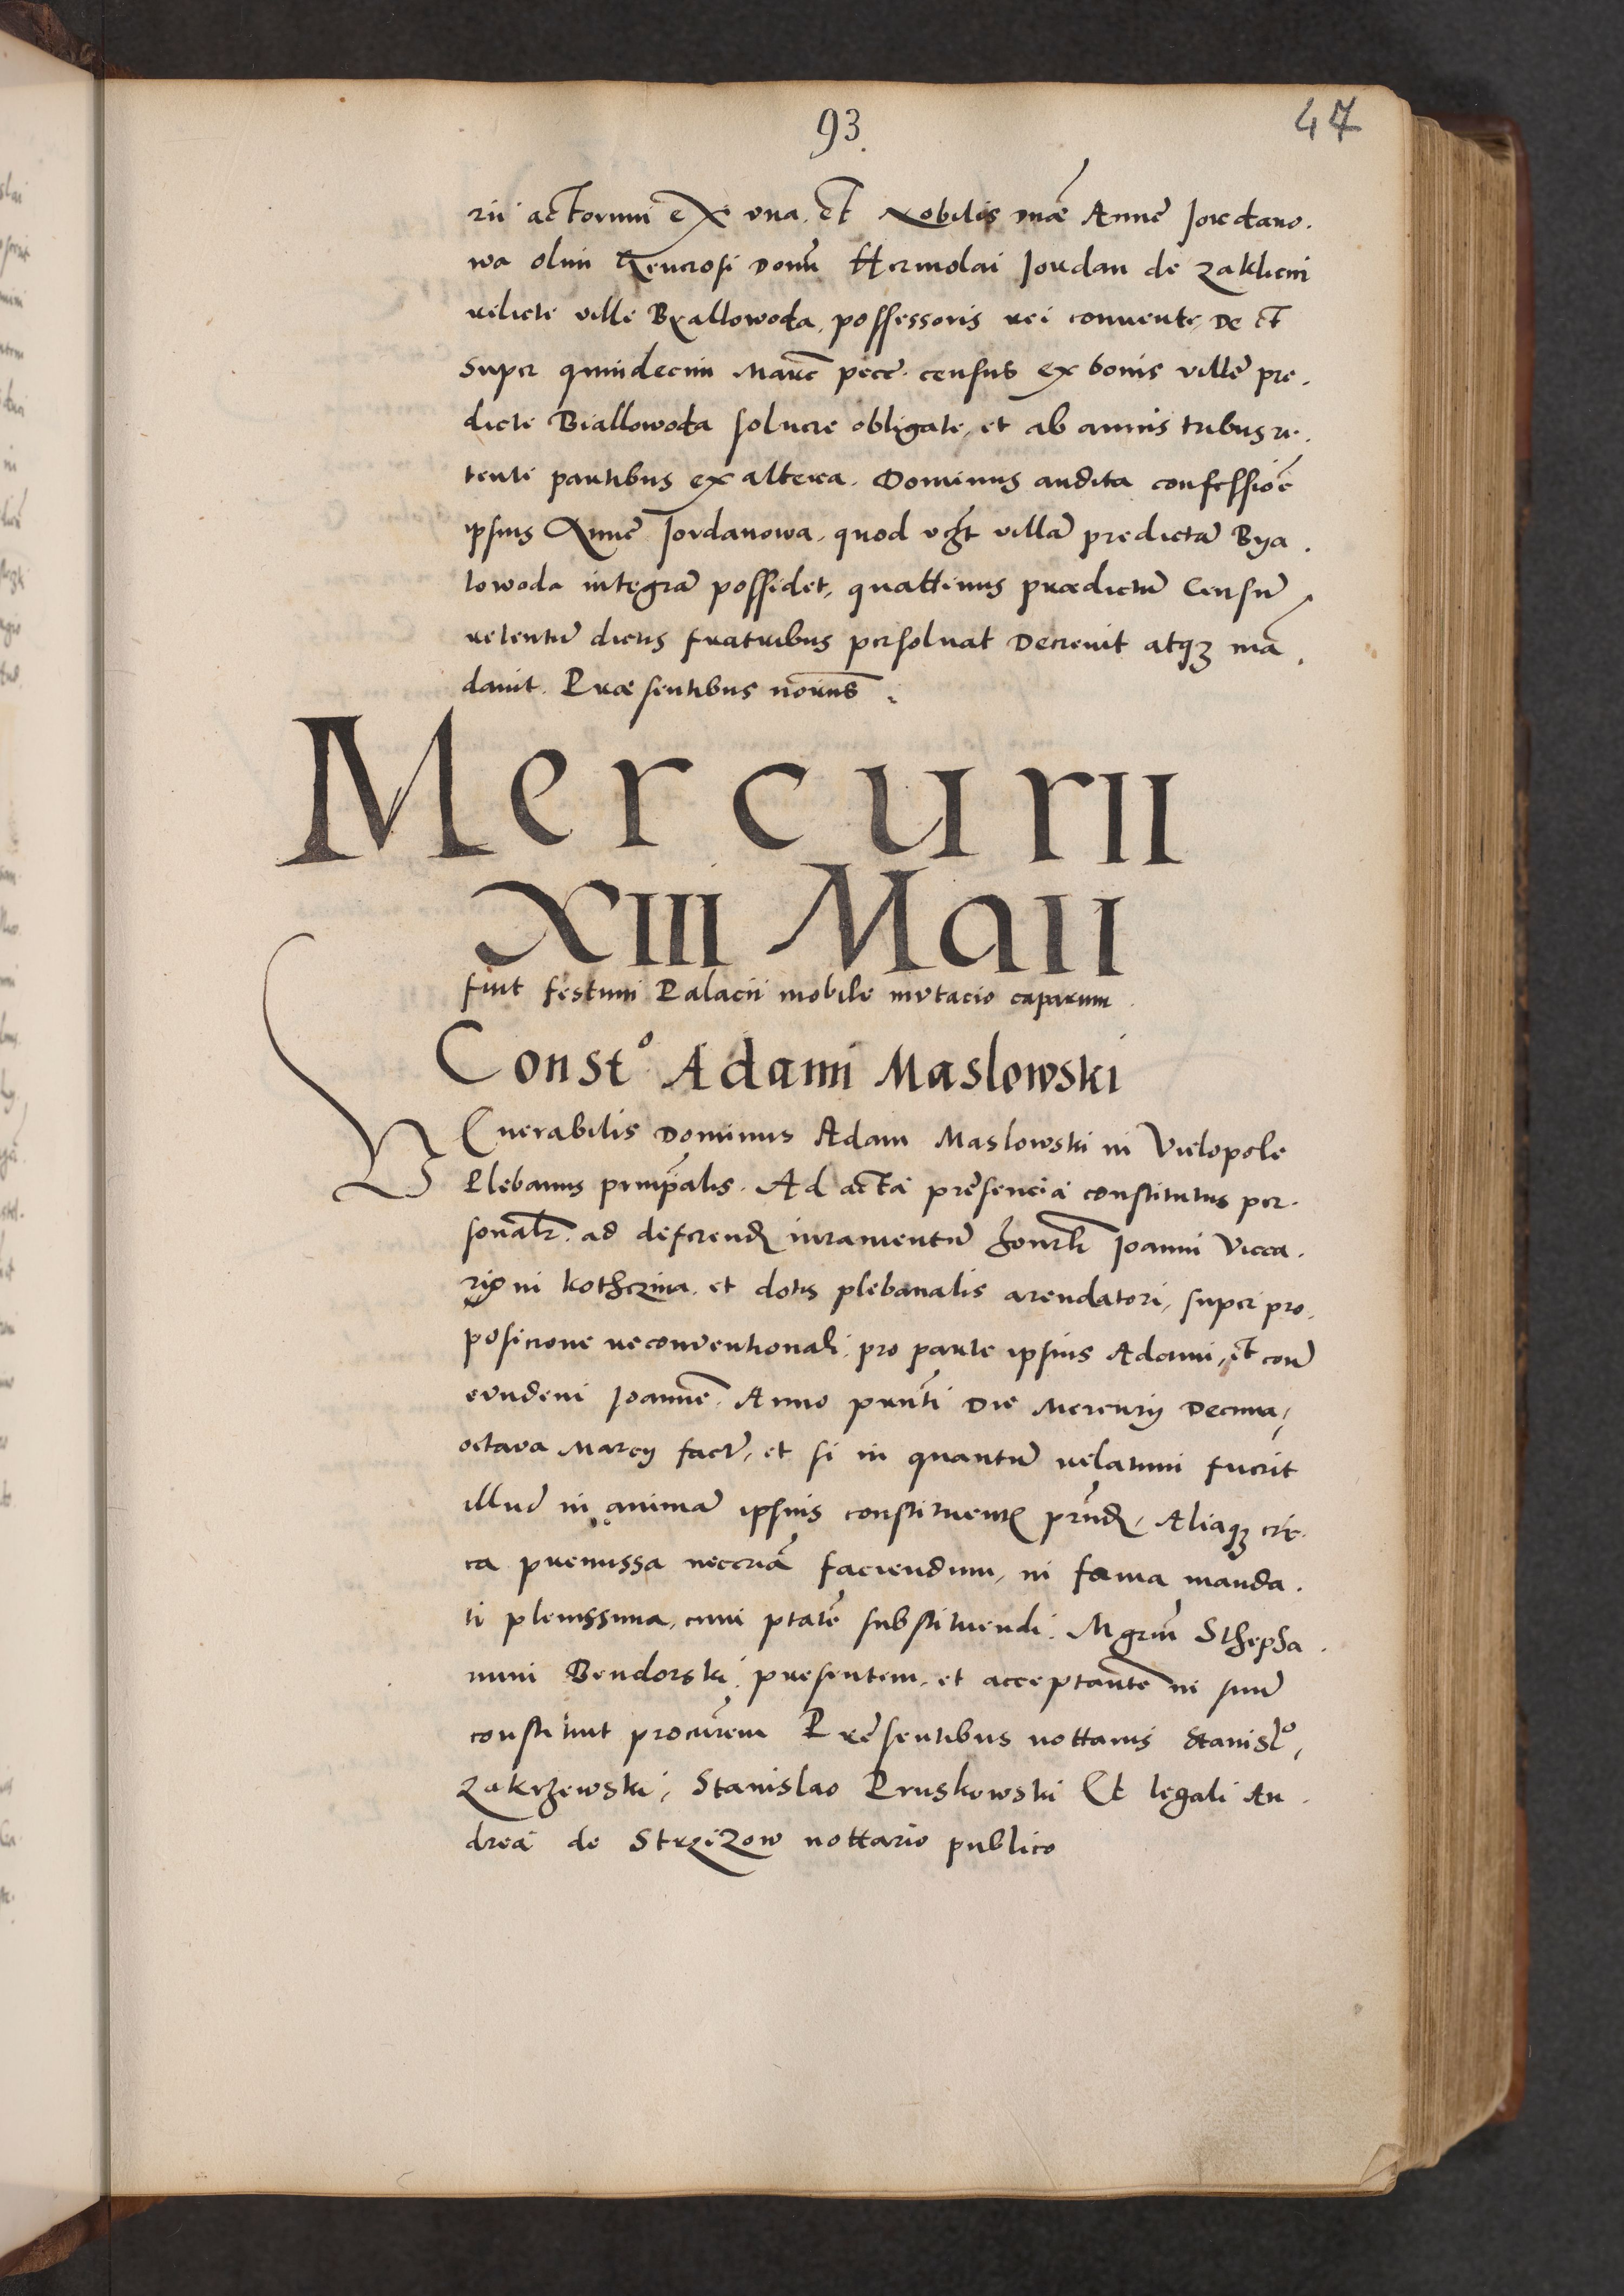 93.
47
rii actorum eX vna. et Nobilis dnae Anne Jordano.
wa olim Generosi Domi Hermolai Jordan de Zaklicni
relicte ville Byallowoda, possessoris rei conuente, De et
super quindecim Marc pecc. census ex bonis ville pre.
dicte Biallowoda soluere obligate, et ab annis tribus re.
tenti partibus ex altera. Dominus audita confessioē
ipsius Anne Jordanowa, quod vgt villā predictā Bya.
lowoda integrā possidet, quattinus praedictū Censū
retentū dictis fratribus persoluat Decreuit atqȝ mā.
dauit. Praesentibus noriis
Mercurii
XIII Maii
fuit festum Palacii mobile mutacio caparum.
Constº Adami Maslowski
VEnerabilis Dominus Adam Maslowski in Vielopole
Plebanus principalis. Ad acta presencia constitutus per.
sonalr. ad deferend iuramentū honorli Joanni Vicca.
rio in Kotherzina. et dotis plebanalis arendatori, super pro.
posicione reconuentionali. pro parte ipsius Adami, et con
eundem Joannē. Anno prnti Die Mercurij Decima,
octaua Marcij fact, et si in quantū relatum fuerit
illud in animā ipsius constituentis prnd, Aliaqȝ cir.
ca premissa neccriā faciendum, in forma manda.
ti plenissima, cum ptatē substituendi. Mgrm Stepha.
num Bendorski presentem, et acceptantē in suū
constituit procurem Presentibus nottariis Stanislº,
Zakrzewski, Stanislao Pruskowski Et legali An.
drea de StrziZow nottario publico